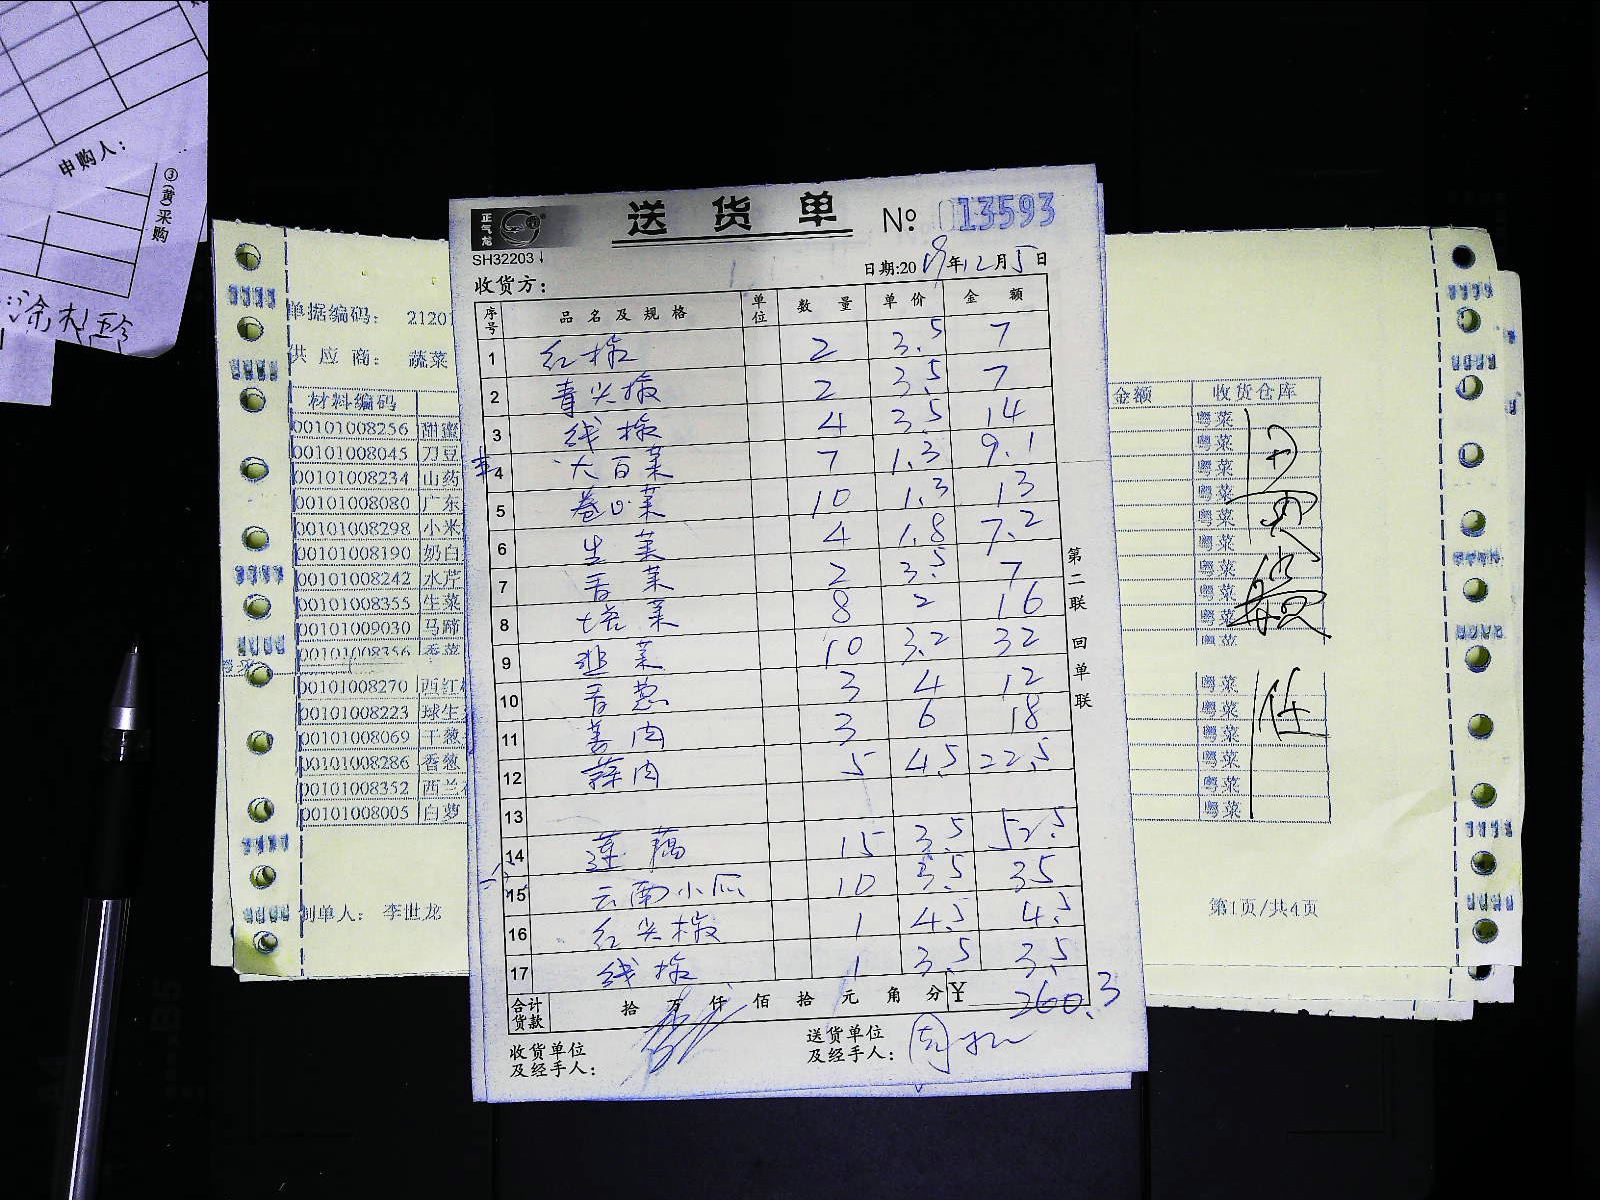 申购人：
③(黄)采购
正气龙
送货单 № 013593
SH32203↓
日期:2019年12月5日
收货方：
序号 品名及规格 单位 数量 单价 金额
1 红椒 2 3.5 7
2 青尖椒 2 3.5 7
3 线椒 4 3.5 14
4 大白菜 7 1.3 9.1
5 卷心菜 10 1.3 13
6 生菜 4 1.8 7.2
7 香菜 2 3.5 7
8 塔菜 8 2 16
9 韭菜 10 3.2 32
10 香葱 3 4 12
11 姜肉 3 6 18
12 蒜肉 5 4.5 22.5
13
14 莲藕 15 3.5 52.5
15 云南小瓜 10 3.5 35
16 红尖椒 1 4.5 4.5
17 线椒 1 3.5 3.5
合计货款 拾 万 仟 佰 拾 元 角 分 ¥ 260.3
收货单位及经手人：
送货单位及经手人：
第二联 回单联
单据编码： 21201
供应商： 蔬菜
材料编码 金额 收货仓库
00101008256 甜蜜 粤菜
00101008045 刀豆 粤菜
00101008234 山药 粤菜
00101008080 广东 粤菜
00101008298 小米 粤菜
00101008190 奶白 粤菜
00101008242 水芹 粤菜
00101008355 生菜 粤菜
00101009030 马蹄 粤菜
00101008356 香菜 粤菜
00101008270 西红 粤菜
00101008223 球生 粤菜
00101008069 干葱 粤菜
00101008286 香葱 粤菜
00101008352 西兰 粤菜
00101008005 白萝 粤菜
制单人： 李世龙
第1页/共4页